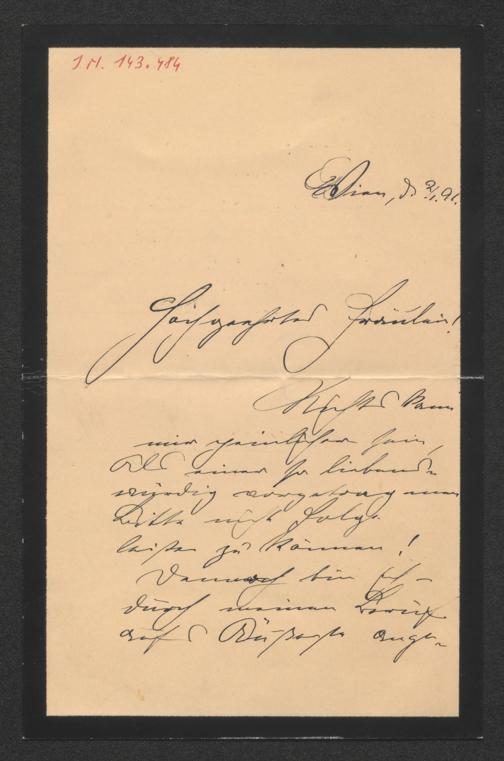 I.N. 143.484
Wien, d. 2/1. 91.
Hochgeehrtes Fräulein!
Nichts kann
mir peinlicher sein,
als einer so liebens-
würdig vorgetragenen
Bitte nicht Folge
leisten zu können!
Dennoch bin ich –
durch meinen Beruf
aufs Äußerste ange-